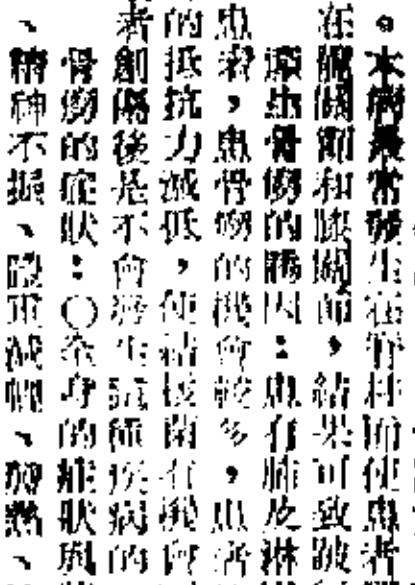 。本病最常發生在脊柱而使患者
在髖關節和膝關節，結果可致跛
患骨癆的誘因：患有肺及淋
患者，患骨癆的機會較多，患者
的抵抗力減低，使結核菌有機會
者創傷後是不會發生這種疾病的
骨癆的症狀：○全身的症狀與
、精神不振、體重減輕、熱、